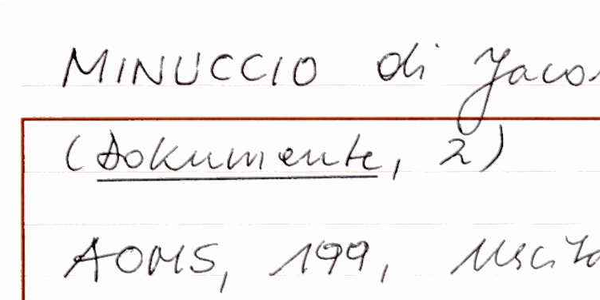 MINUCCIO di Jaco
(Dokumente, 2)
AOMS, 199, Uscita